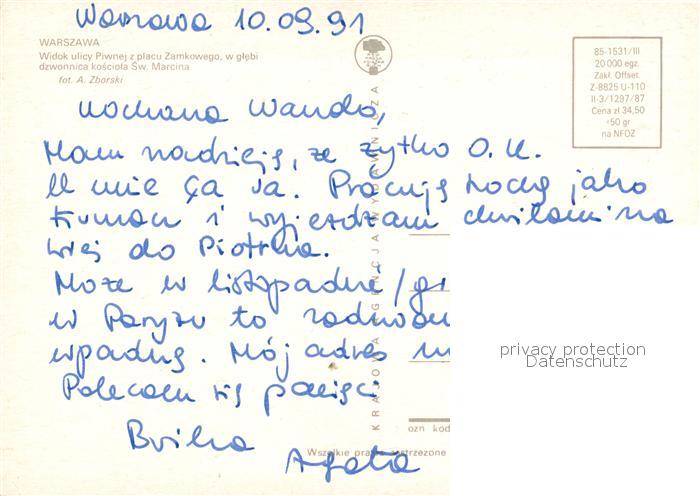 Warszawa 10.09.91
WARSZAWA
Widok ulicy Piwnej z placu Zamkowego, w głębi
dzwonnica kościoła Św. Marcina
fot. A. Zborski
85-1531/III
20 000 egz.
Zakł. Offset.
Z-8825 U-110
II-3/1297/87
Cena zł 34,50
+50 gr
na NFOZ
Kochana Wando,
Mam nadzieję, że żytko O.K.
U mnie ça va. Pracuję trochę jako
i wyjeżdżam chwilami na
wieś do Piotrka.
Może w listopadzie/gr
w Paryżu to zadzwon
wpadnę. Mój adres
Polecam się pamięci
Buźka
Agata
KRAJOWA AGENCJA WYDAWNICZA
ozn kod
Wszelkie prawa zastrzeżone
privacy protection
Datenschutz